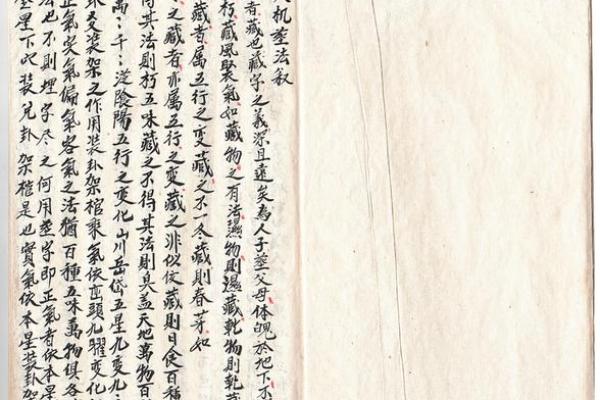 机塟法叙
者藏也藏字之義深且遠矣為人子塟父母体魄於地下不
朽藏風聚氣如藏物之有法濕物則濕藏乾物則乾藏
藏者属五行之变藏之不一冬藏則春芽如
之藏者亦属五行之变藏之非似仗藏則日食百種
得其法則朽五味藏之不得其法則臭盖天地萬物百
萬千逆陰陽五行之变化山川岳岱五星九变九
爻装架之作用装卦架棺乘氣依巒頭九曜变化
正氣突氣偏氣客氣之法猶百種五味萬物俱各
也不則埋字尽之何用塟字即正氣者依本星
星下穴装兑卦架棺是也實氣依本星装卦架